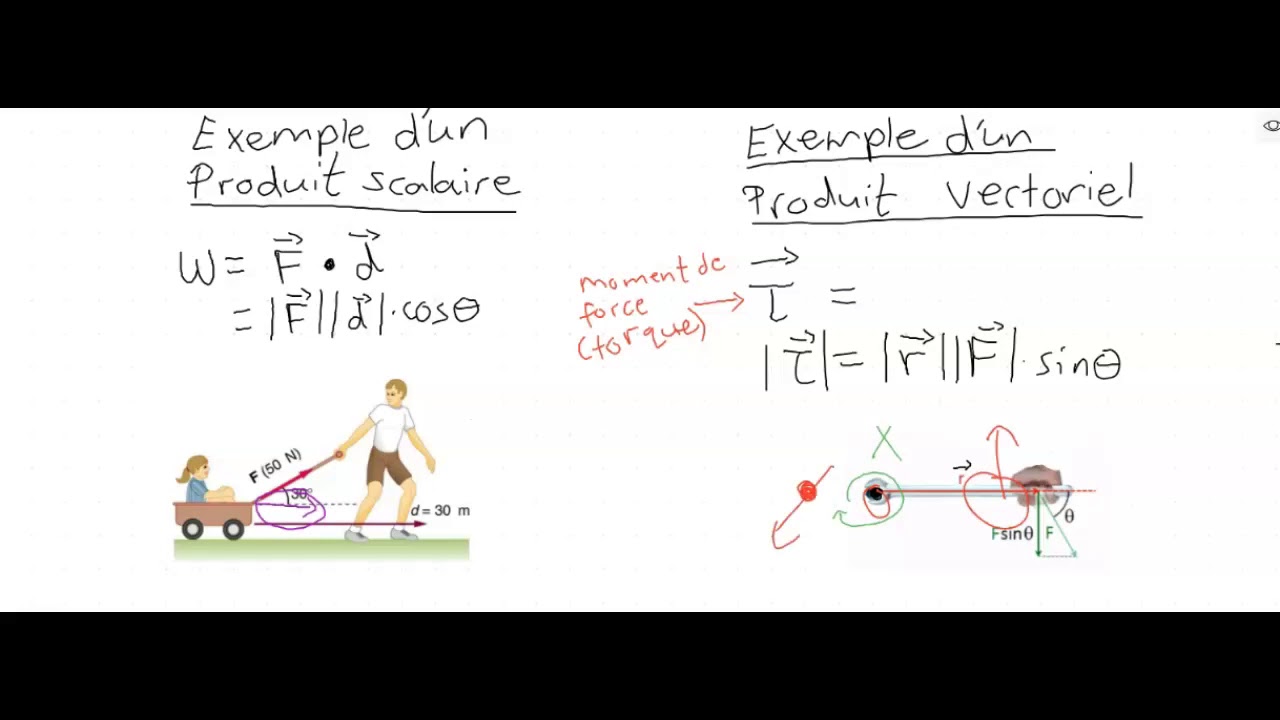 Exemple d'un
Produit scalaire
W = F⃗ • d⃗
= |F⃗||d⃗|·cosθ
F (50 N)
30°
d = 30 m
Exemple d'un
Produit vectoriel
moment de
force
(torque)
τ⃗ =
|τ⃗| = |r⃗||F⃗|·sinθ
X
r⃗
θ
Fsinθ
F